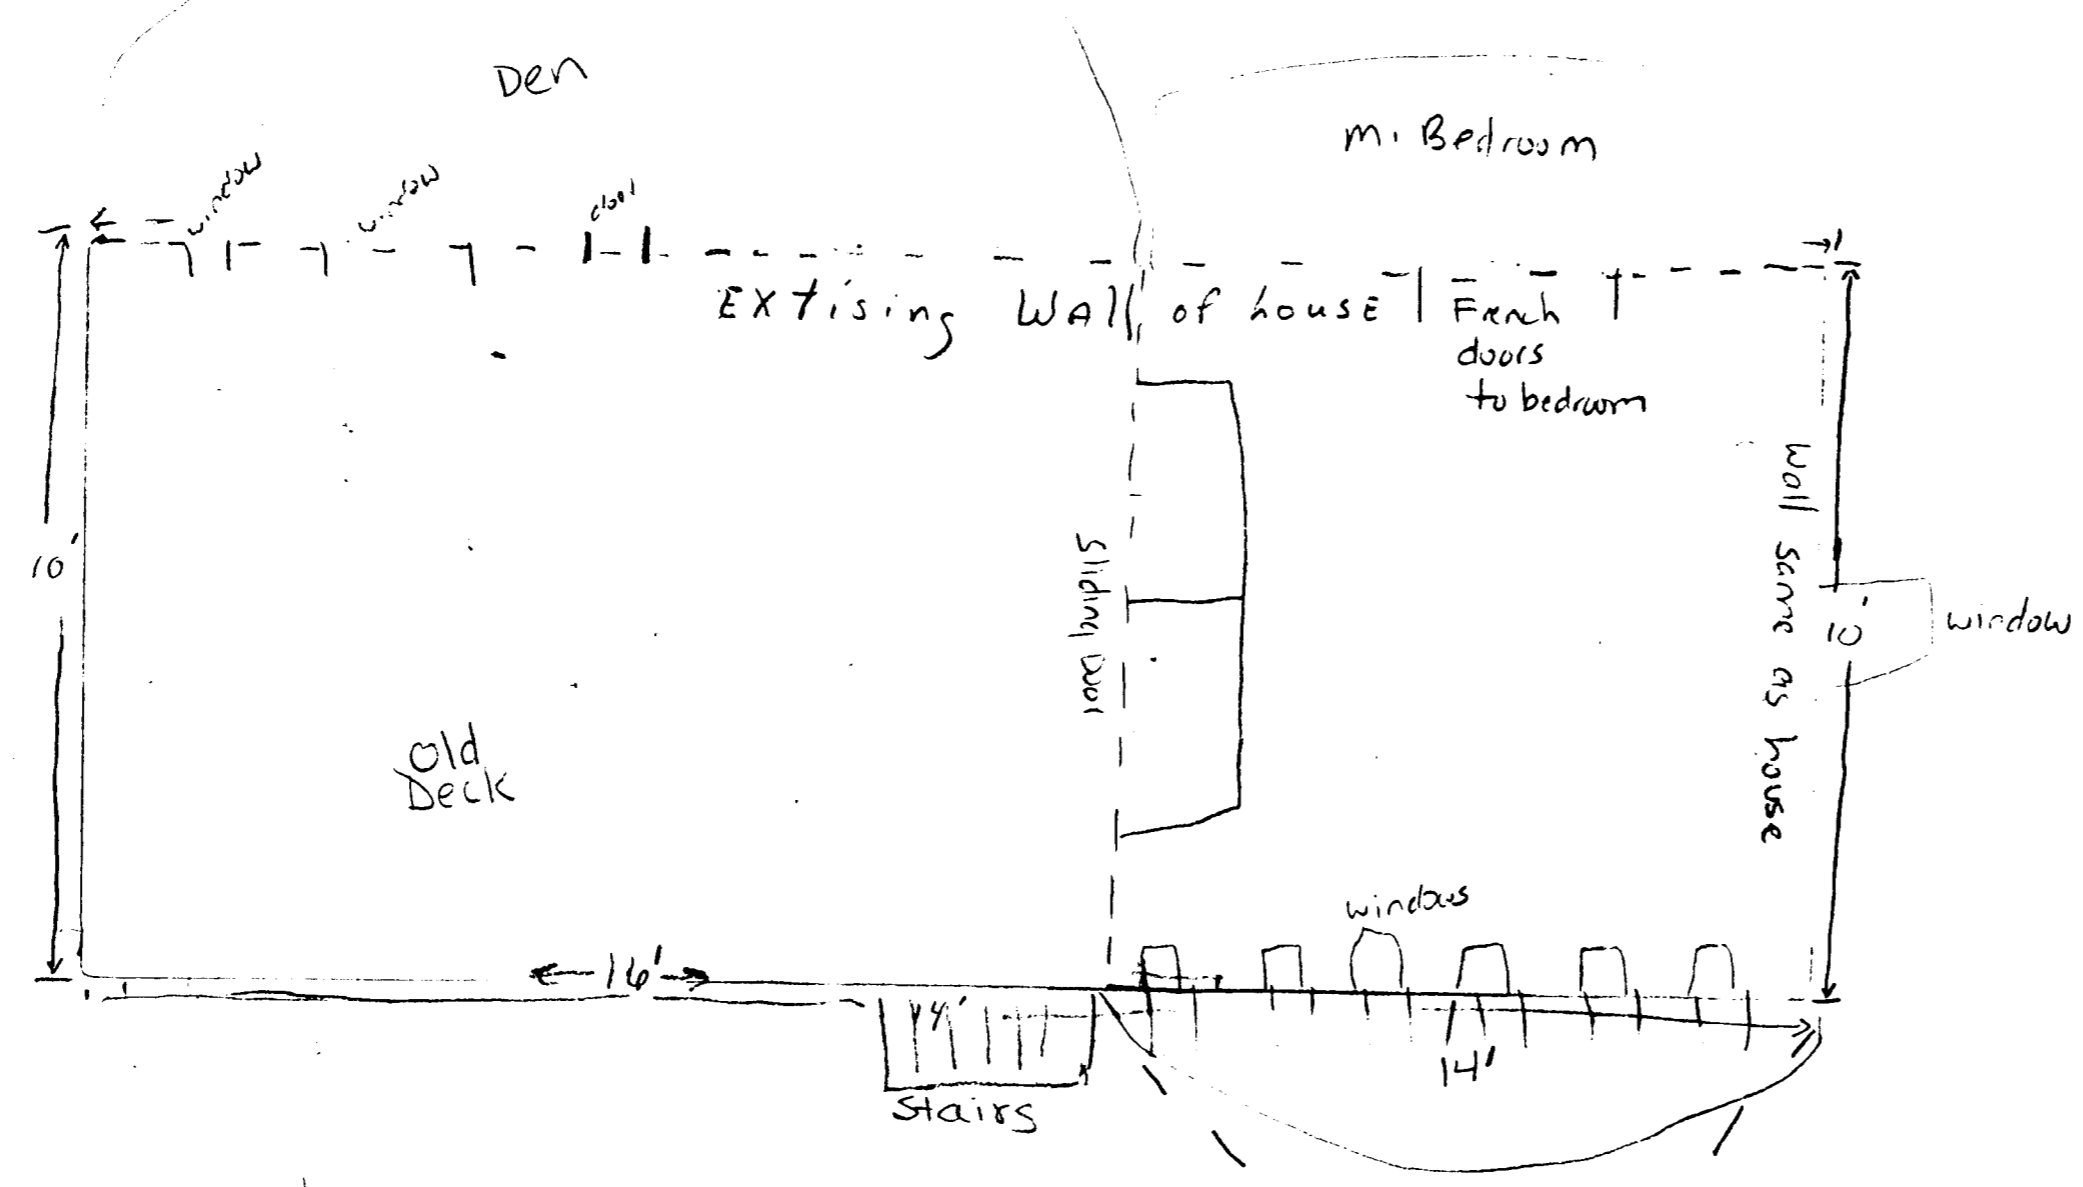 Den
m. Bedroom
window
window
door
EXtising WAll of house
French
doors
to bedroom
10'
Sliding Door
Wall same as house
10'
window
Old
Deck
windows
16'
14'
Stairs